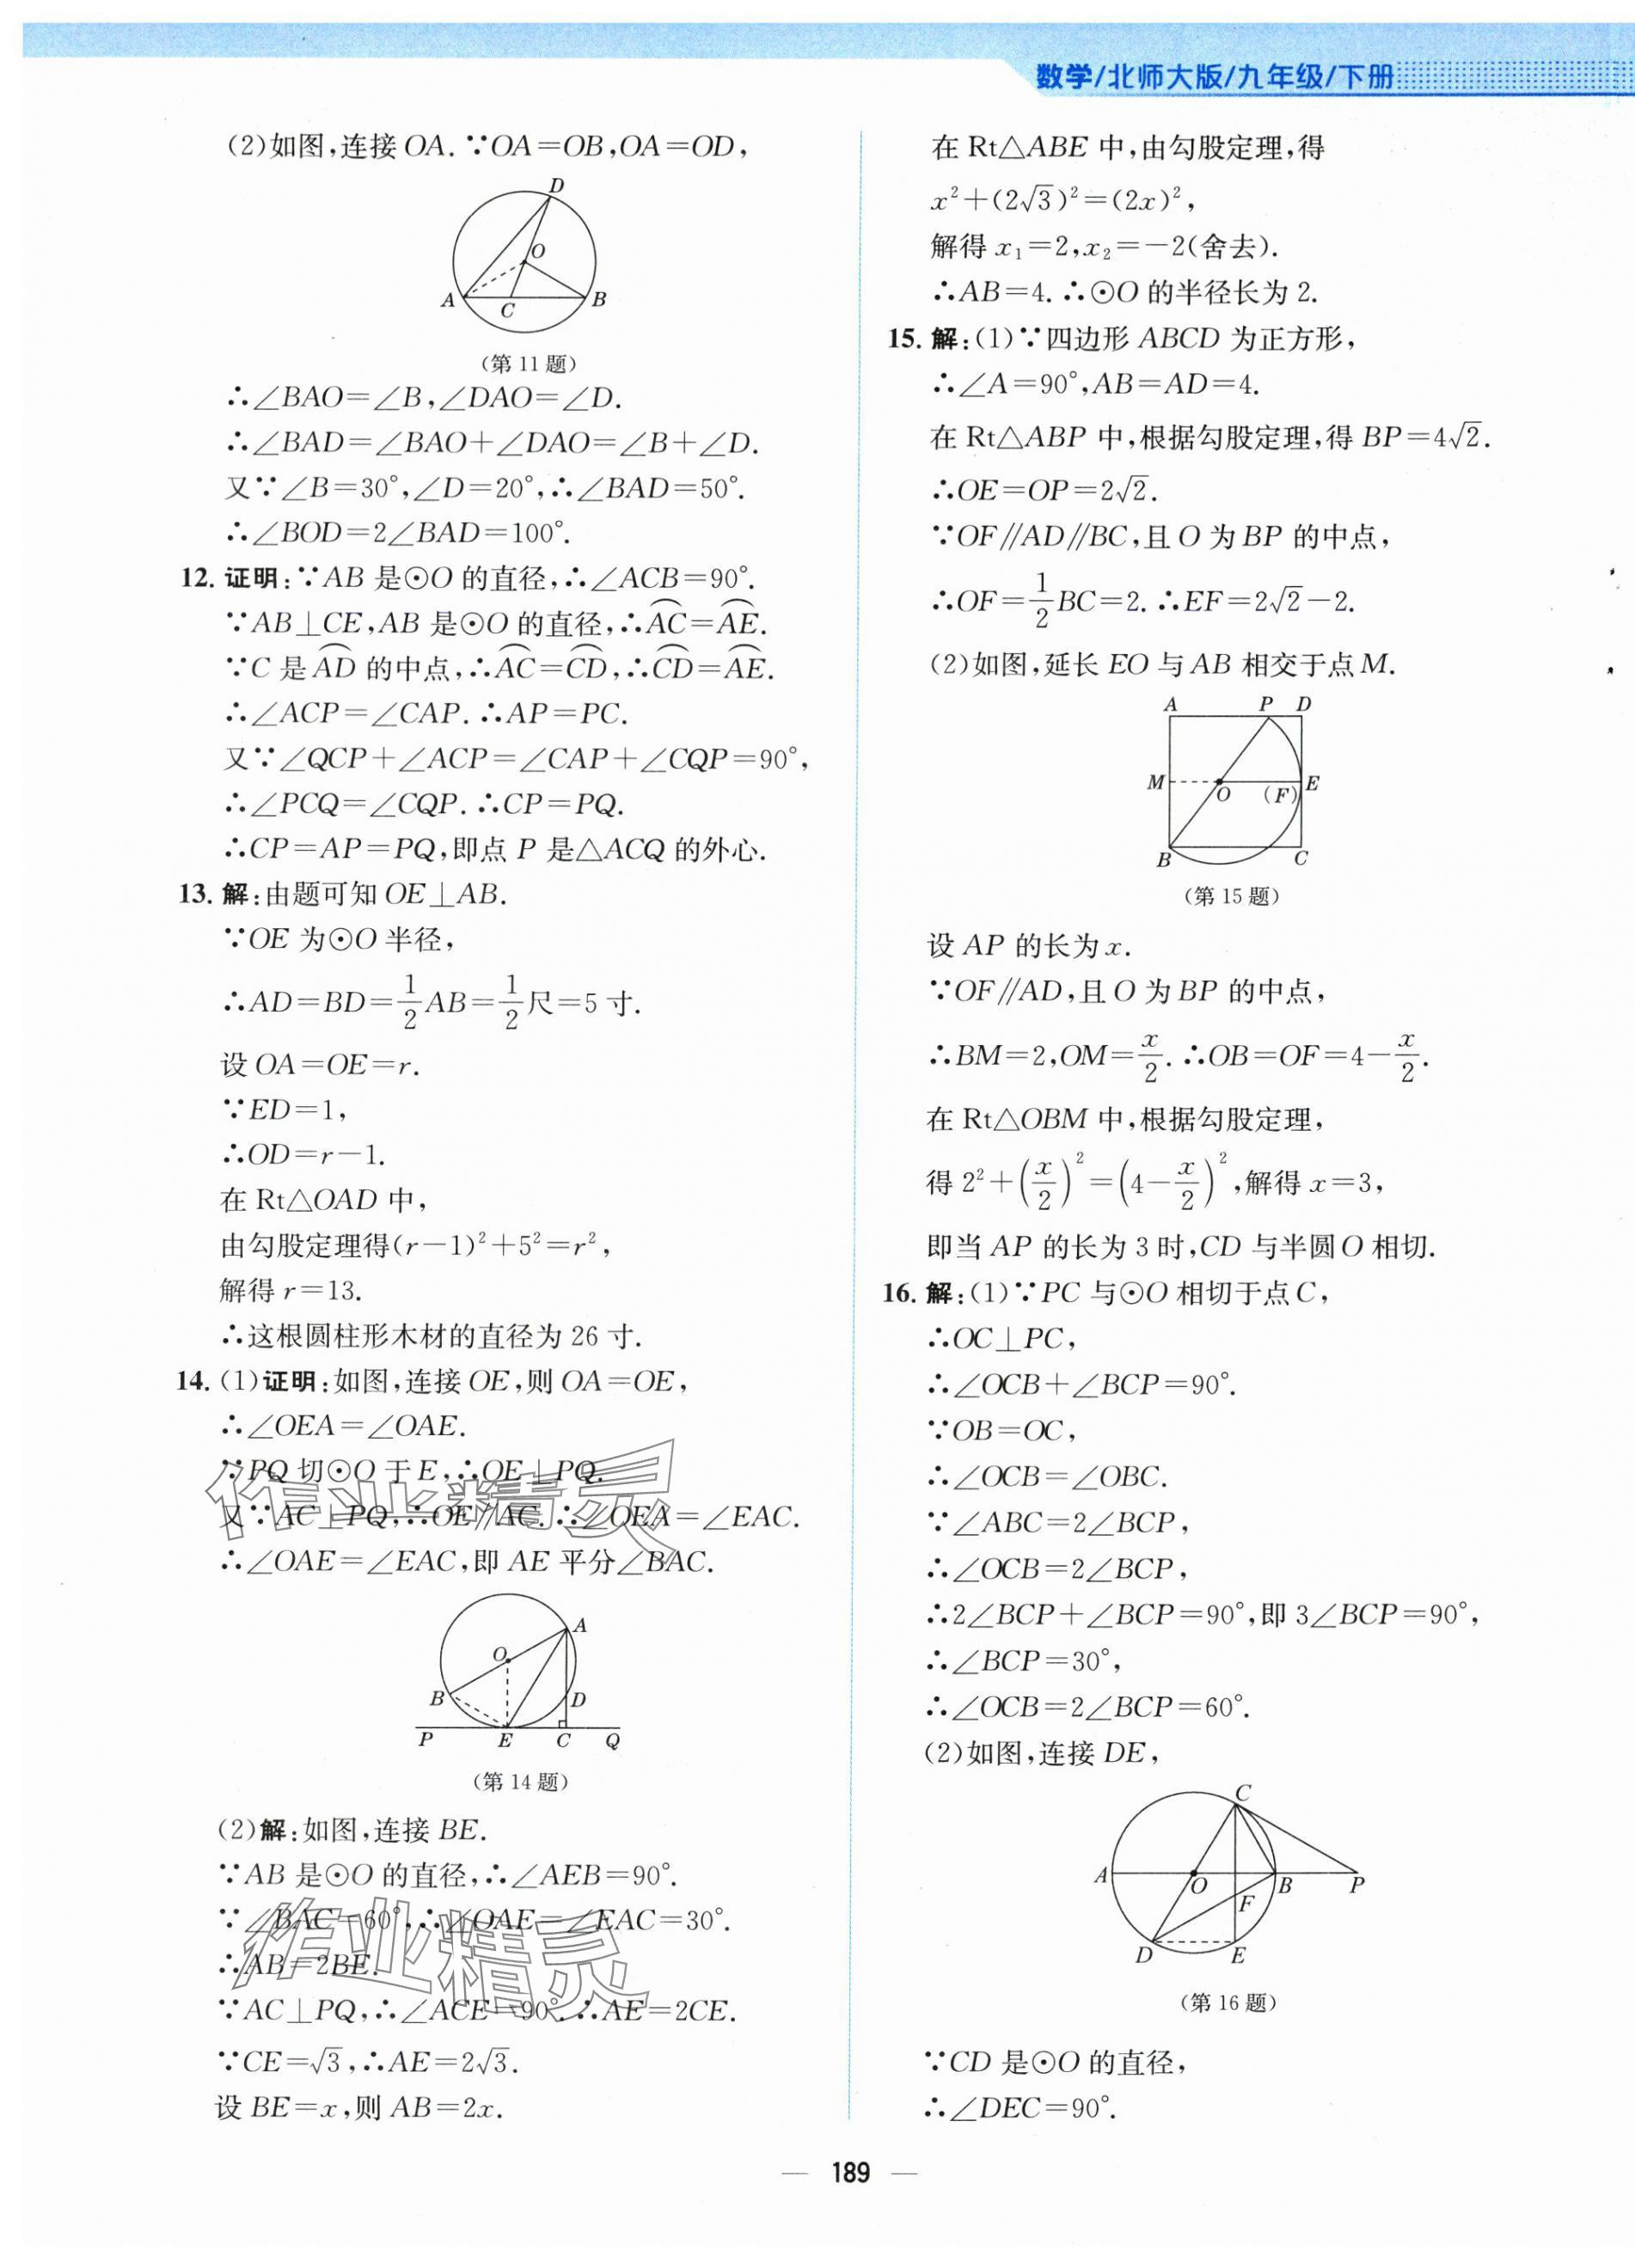 数学/北师大版/九年级/下册
(2)如图,连接 OA. ∵OA=OB,OA=OD,
D
O
A
C
B
(第 11 题)
∴∠BAO=∠B,∠DAO=∠D.
∴∠BAD=∠BAO+∠DAO=∠B+∠D.
又∵∠B=30°,∠D=20°,∴∠BAD=50°.
∴∠BOD=2∠BAD=100°.
12. 证明:∵AB 是⊙O 的直径,∴∠ACB=90°.
∵AB⊥CE,AB 是⊙O 的直径,∴⌒AC=⌒AE.
∵C 是⌒AD 的中点,∴⌒AC=⌒CD,∴⌒CD=⌒AE.
∴∠ACP=∠CAP. ∴AP=PC.
又∵∠QCP+∠ACP=∠CAP+∠CQP=90°,
∴∠PCQ=∠CQP. ∴CP=PQ.
∴CP=AP=PQ,即点 P 是△ACQ 的外心.
13. 解:由题可知 OE⊥AB.
∵OE 为⊙O 半径,
∴AD=BD=1/2 AB=1/2 尺=5 寸.
设 OA=OE=r.
∵ED=1,
∴OD=r-1.
在 Rt△OAD 中,
由勾股定理得(r-1)²+5²=r²,
解得 r=13.
∴这根圆柱形木材的直径为 26 寸.
14. (1)证明:如图,连接 OE,则 OA=OE,
∴∠OEA=∠OAE.
∵PQ 切⊙O 于 E,∴OE⊥PQ.
又∵AC⊥PQ,∴OE∥AC. ∴∠OEA=∠EAC.
∴∠OAE=∠EAC,即 AE 平分∠BAC.
作业精灵
A
O
B
D
P
E
C
Q
(第 14 题)
(2)解:如图,连接 BE.
∵AB 是⊙O 的直径,∴∠AEB=90°.
∵∠BAC=60°,∴∠OAE=∠EAC=30°.
∴AB=2BE.
∵AC⊥PQ,∴∠ACE=90°. ∴AE=2CE.
作业精灵
∵CE=√3,∴AE=2√3.
设 BE=x,则 AB=2x.
在 Rt△ABE 中,由勾股定理,得
x²+(2√3)²=(2x)²,
解得 x₁=2,x₂=-2(舍去).
∴AB=4. ∴⊙O 的半径长为 2.
15. 解:(1)∵四边形 ABCD 为正方形,
∴∠A=90°,AB=AD=4.
在 Rt△ABP 中,根据勾股定理,得 BP=4√2.
∴OE=OP=2√2.
∵OF∥AD∥BC,且 O 为 BP 的中点,
∴OF=1/2 BC=2. ∴EF=2√2-2.
(2)如图,延长 EO 与 AB 相交于点 M.
A
P
D
M
O
(F)
E
B
C
(第 15 题)
设 AP 的长为 x.
∵OF∥AD,且 O 为 BP 的中点,
∴BM=2,OM=x/2. ∴OB=OF=4-x/2.
在 Rt△OBM 中,根据勾股定理,
得 2²+(x/2)²=(4-x/2)²,解得 x=3,
即当 AP 的长为 3 时,CD 与半圆 O 相切.
16. 解:(1)∵PC 与⊙O 相切于点 C,
∴OC⊥PC,
∴∠OCB+∠BCP=90°.
∵OB=OC,
∴∠OCB=∠OBC.
∵∠ABC=2∠BCP,
∴∠OCB=2∠BCP,
∴2∠BCP+∠BCP=90°,即 3∠BCP=90°,
∴∠BCP=30°,
∴∠OCB=2∠BCP=60°.
(2)如图,连接 DE,
C
A
O
B
P
F
D
E
(第 16 题)
∵CD 是⊙O 的直径,
∴∠DEC=90°.
— 189 —